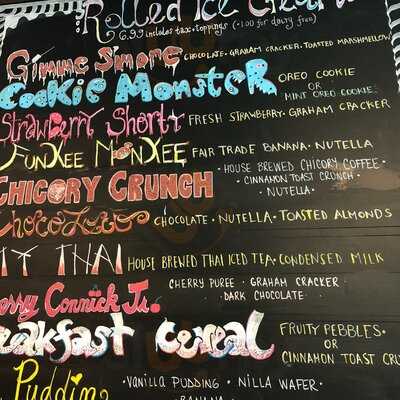 Rolled Ice Crea
6.99 includes tax + toppings (+1.00 for dairy free)
Gimme Smore CHOCOLATE · GRAHAM CRACKER · TOASTED MARSHMALLOW
Cookie Monster OREO COOKIE
OR
MINT OREO COOKIE
Strawberry Shorty FRESH STRAWBERRY · GRAHAM CRACKER
FunXee MonXee FAIR TRADE BANANA · NUTELLA
CHICORY CRUNCH · HOUSE BREWED CHICORY COFFEE ·
CINNAMON TOAST CRUNCH ·
NUTELLA ·
CHOCOLATE · NUTELLA · TOASTED ALMONDS
THAI HOUSE BREWED THAI ICED TEA · CONDENSED MILK
erry Connick Jr. CHERRY PUREE · GRAHAM CRACKER
· DARK CHOCOLATE ·
eakfast cereal FRUITY PEBBLES ·
OR
CINNAMON TOAST CRU
Puddin · VANILLA PUDDING · NILLA WAFER ·
BANANA